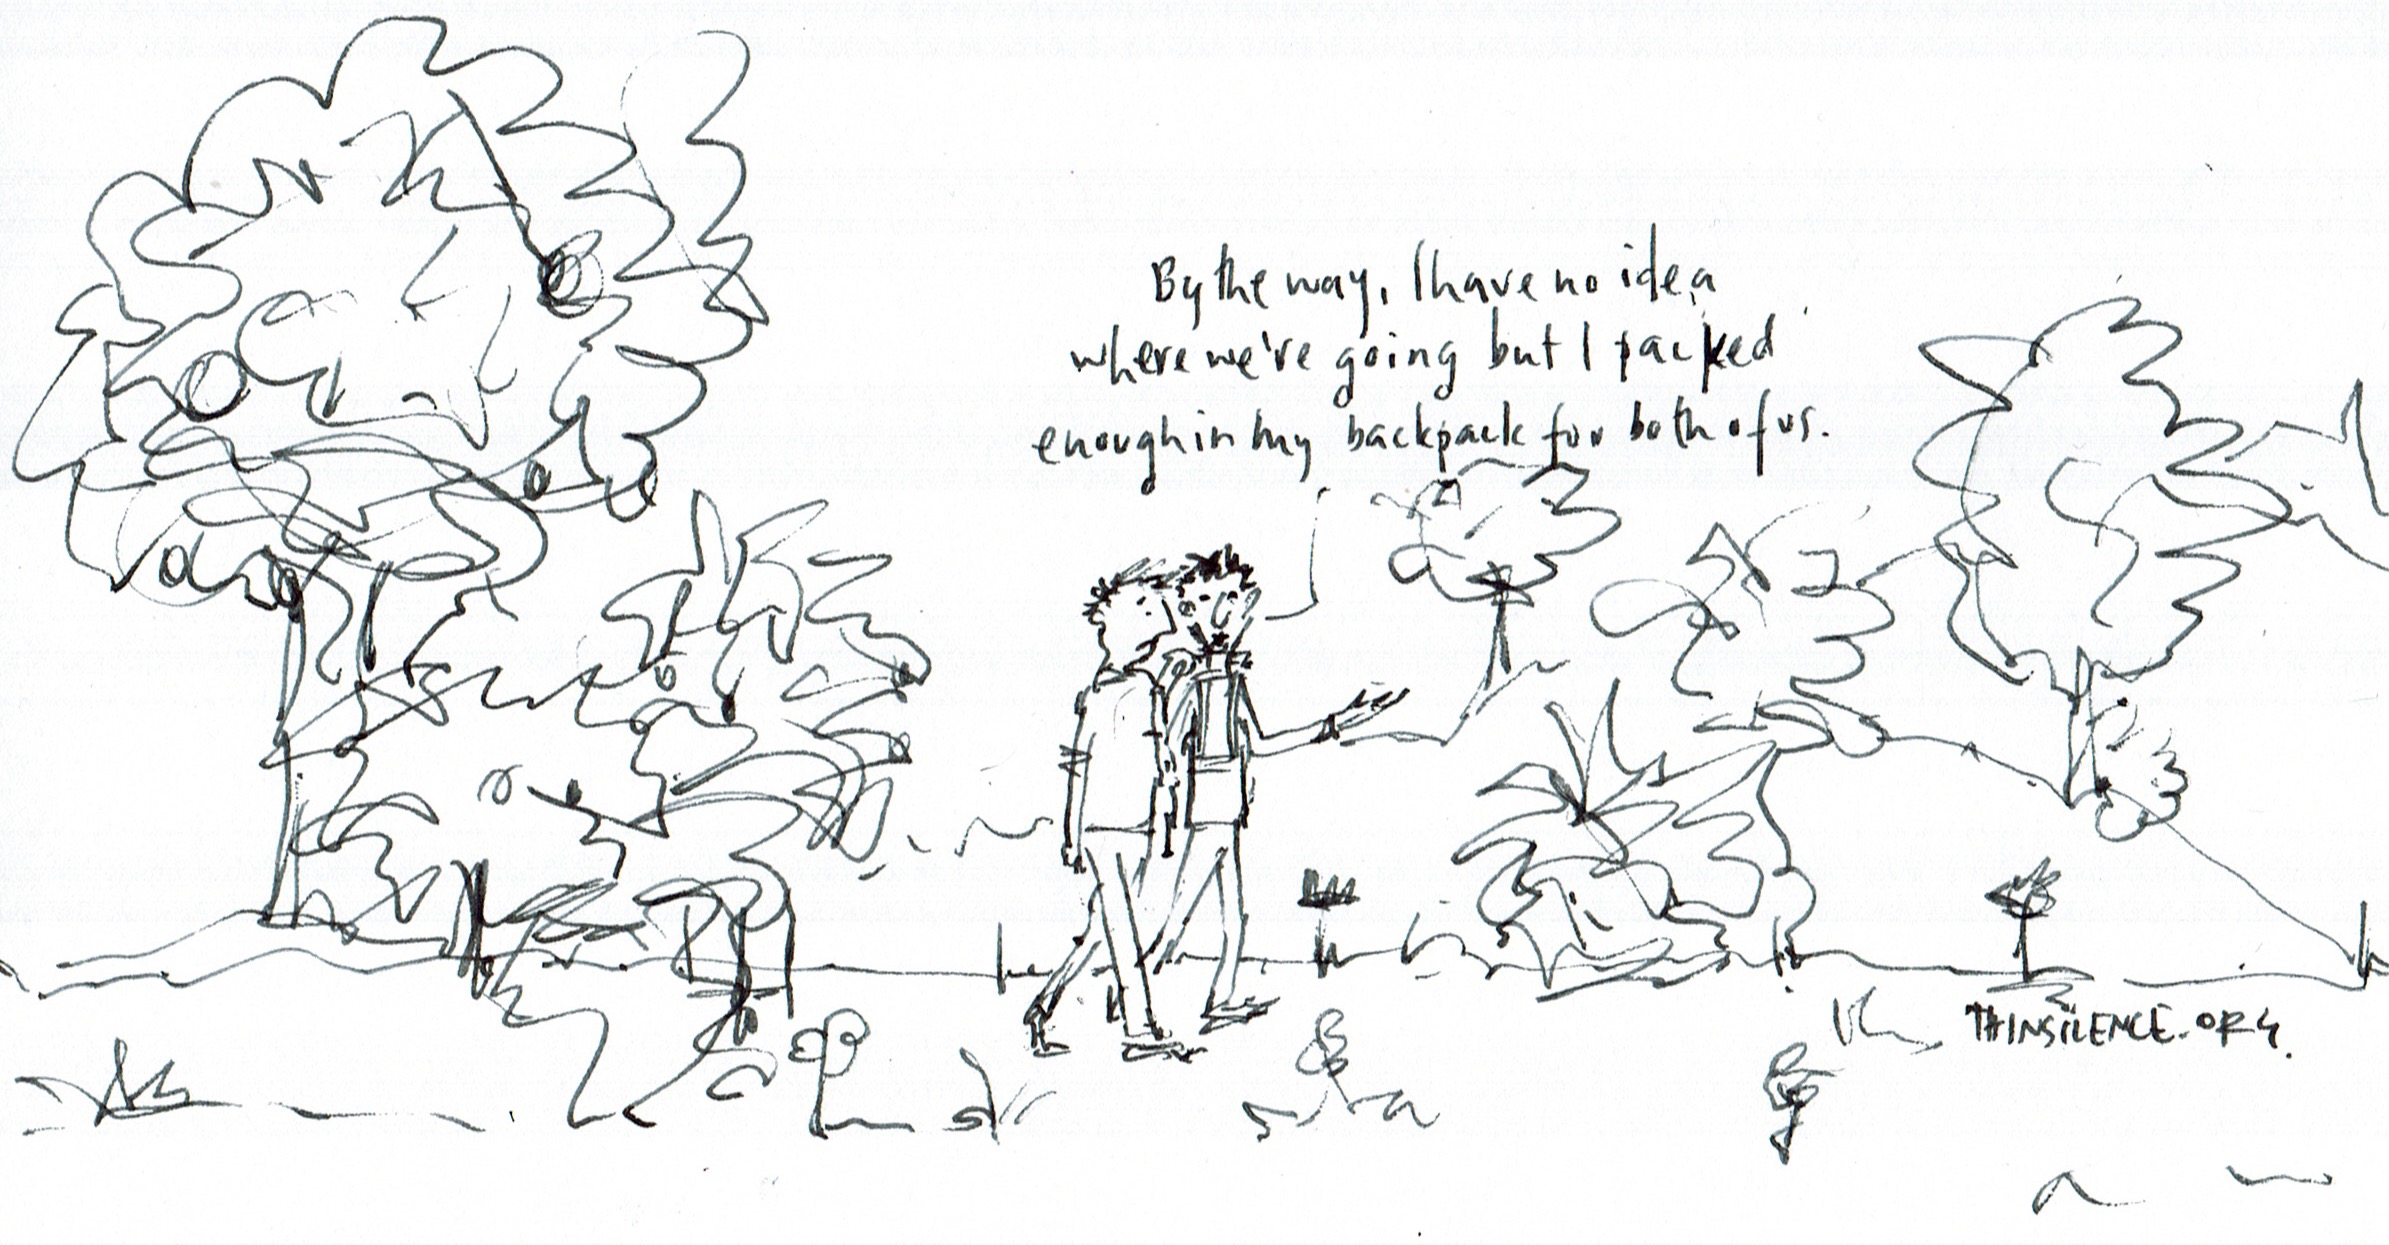 By the way, I have no idea
where we're going but I packed
enough in my backpack for both of us.
THINSILENCE.ORG.